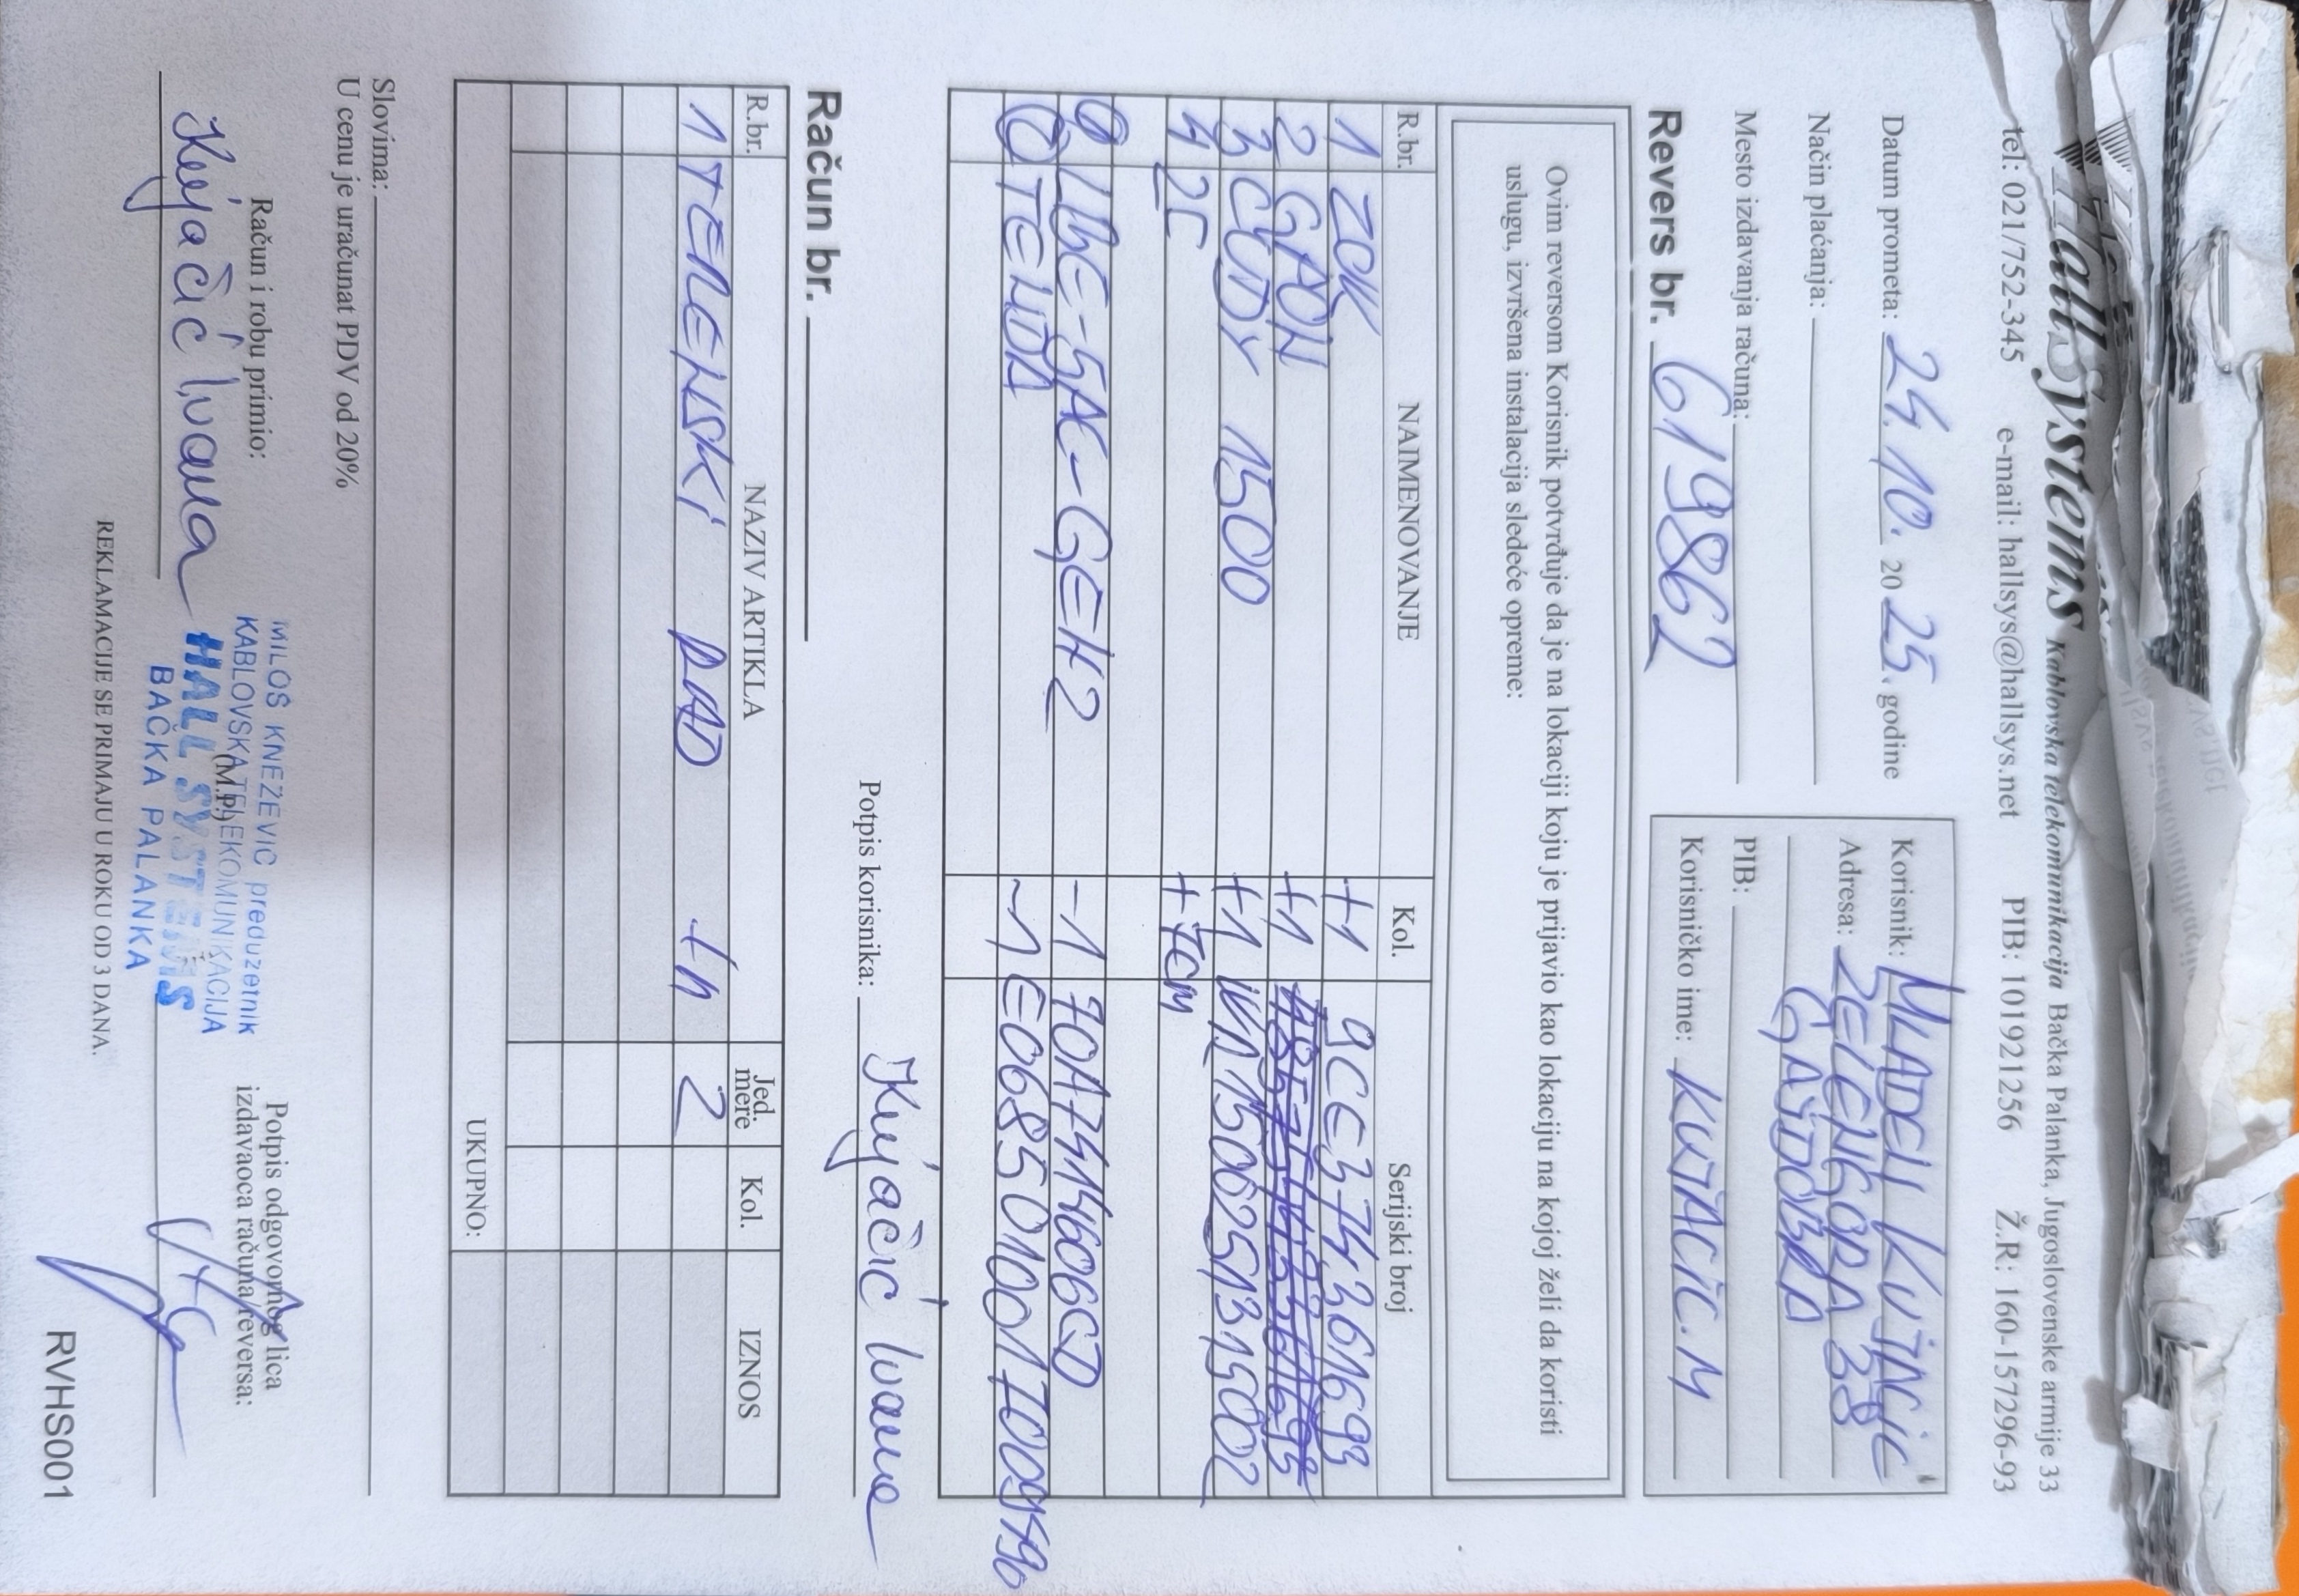 Hall Systems Kablovska telekomunikacija Bačka Palanka, Jugoslovenske armije 33
tel: 021/752-345 e-mail: hallsys@hallsys.net PIB: 101921256 Ž.R: 160-157296-93
Datum prometa: 24.10. 2025. godine
Način plaćanja:
Mesto izdavanja računa:
Revers br. 619862
Korisnik: MLADEN KUJAČIĆ
Adresa: ZELENGORA 38
GAJDOBRA
PIB:
Korisničko ime: KUJACIC.M
Ovim reversom Korisnik potvrđuje da je na lokaciji koju je prijavio kao lokaciju na kojoj želi da koristi
uslugu, izvršena instalacija sledeće opreme:
R.br. NAIMENOVANJE Kol. Serijski broj
1 ZOK +1 9CE374261693
2 GPON +1
3 CUDY 1500 +1 WR15006251315002
4 2C +7CM
LBE-5AC-GEN2 -1 70A7414606CD
TENDA -1
Potpis korisnika: Kujačić Ivana
Račun br.
R.br. NAZIV ARTIKLA Jed. mere Kol. IZNOS
1 TERENSKI RAD 1h 2
UKUPNO:
Slovima:
U cenu je uračunat PDV od 20%
Račun i robu primio:
Kujačić Ivana
MILOŠ KNEŽEVIĆ preduzetnik
KABLOVSKA TELEKOMUNIKACIJA
(M.P.)
HALL SYSTEMS
BAČKA PALANKA
Potpis odgovornog lica
izdavaoca računa/reversa:
REKLAMACIJE SE PRIMAJU U ROKU OD 3 DANA.
RVHS001